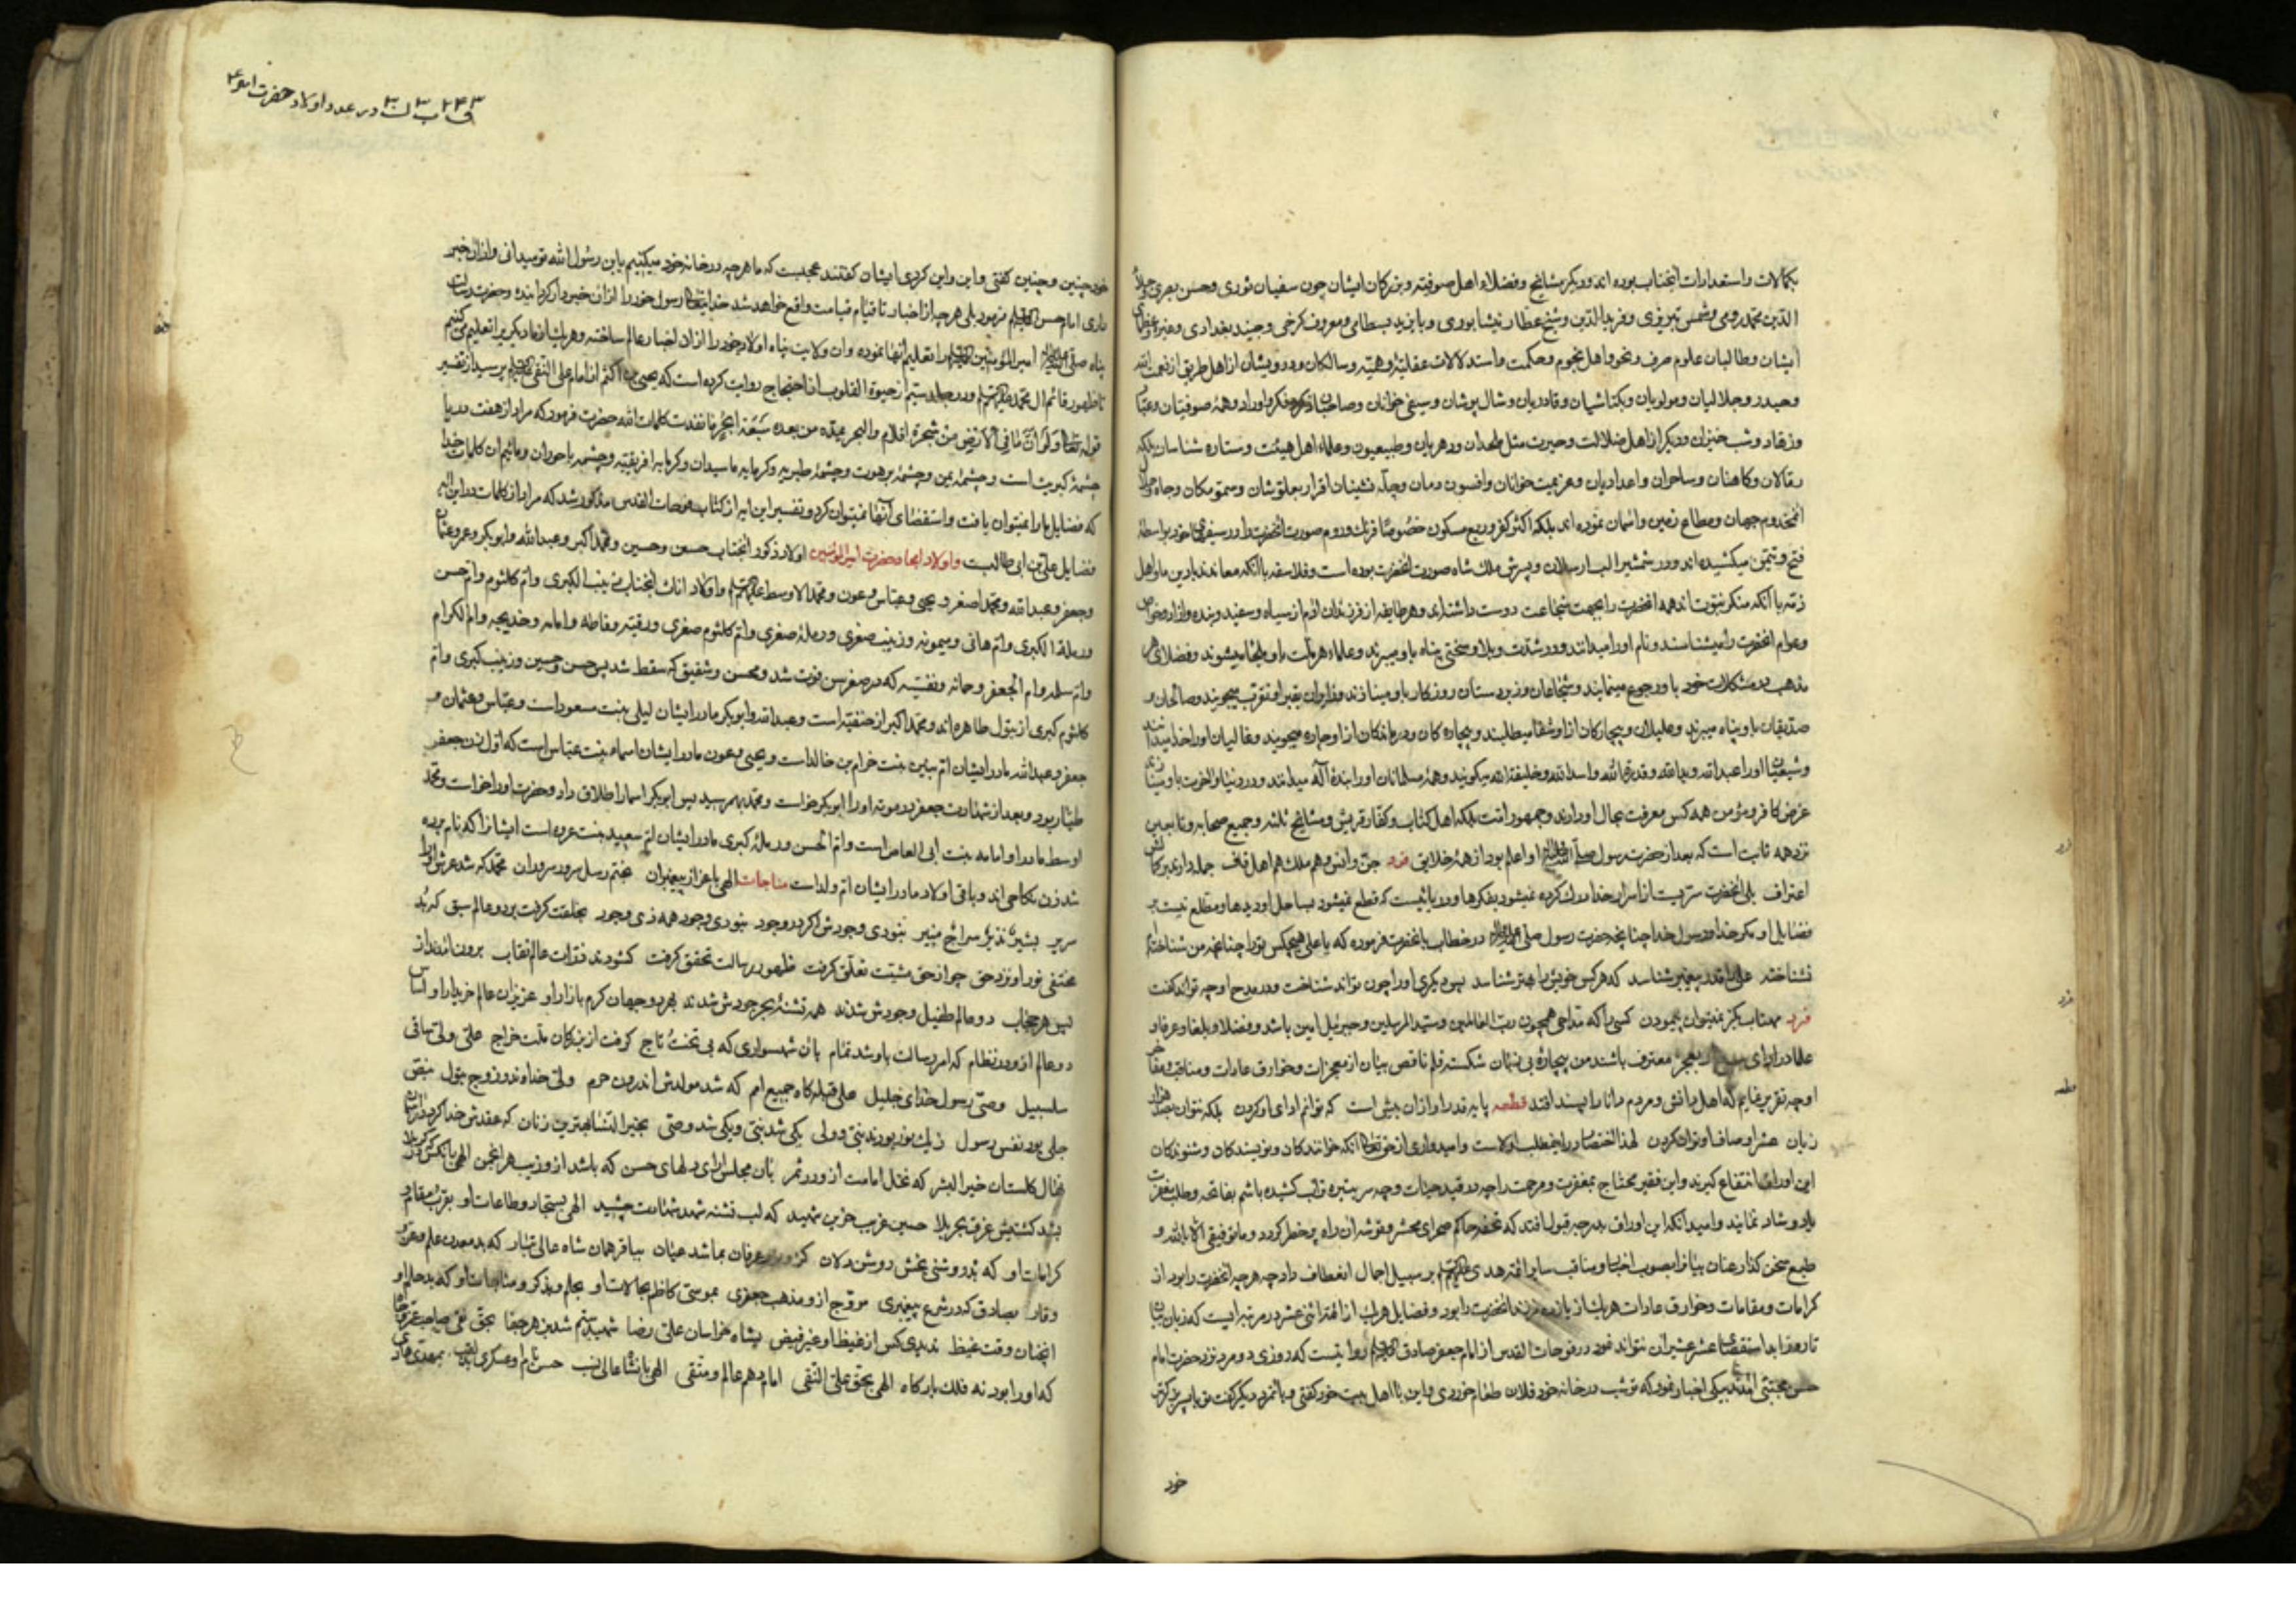 بکمالات و استعدادات آنجناب بوده اند و دیگر مشایخ و فضلاء اهل صوفیّه و بزرکان ایشان چون سفیان ثوری و حسن بصری و جلال
الدّین محمّد رومی و شمس تبریزی و فرید الدّین و شیخ عطار نیشابوری و بایزید بسطامی و معروف کرخی و جنید بغدادی و غیره و عظمای
ایشان و طالبان علوم صرف و نحو و اهل نجوم و حکمت و استدلالات عقلیّه و وهمیّه و سالکان و درویشان از اهل طریق از نعمت الله
و حیدر و جلالیان و مولویان و بکتاشیان و قادریان و شال پوشان و سیفی خوانان و صاحبان ذکر و فکر و اوراد و همۀ صوفیان و عبّاد
و زهّاد و شب خیزان و دیکر از اهل ضلالت و حیرت مثل ملحدان و دهریان و طبیعیون و علماء اهل هیئت و ستاره شناسان بلکه
رمّالان و کاهنان و ساحران و اعدادیان و عزیمت خوانان و افسون دمان و چلّه نشینان اقرار بعلو شان و سمّو مکان و جاه و جلال
آنمخدوم جهان و مطاع زمین و آسمان نموده اند بلکه اکثر کفّار ربع مسکون خصوصًا فرنک و روم صورت آنحضرت را در سیفهای خود بواسطۀ
فتح و تیمّن میکشیده اند و در شمشیر الب ارسلان و پسرش ملک شاه صورت آنحضرت بوده است و فلاسفه با آنکه معاندند با دین ما و اهل
ذمّه با آنکه منکر نبوّت اند همه آنحضرت را بجهت شجاعت دوست داشته اند و هر طایفه از فرزندان آدم از سیاه و سفید و بنده و آزاد و خواص
و عوام آنحضرت را میشناسند و نام او را میدانند و در شدّت و بلا و سختی پناه باو میبرند و علماء هر ملّت باو ملتجا میشوند و فضلای هر
مذهب در مشکلات خود باو رجوع مینمایند و شجاعان و زبردستان روزکار باو مینازند و زوّاران بقبر او تقرّب میجویند و صالحان و
صدّیقان باو پناه میبرند و علیلان و بیچارکان از او شفا میطلبند و بیچاره کان و درماندکان از او چاره میجویند و غالیان او را خدا میدانند
و شیعیان او را عبد الله و ید الله و قدرة الله و اسد الله و خلیفة الله میکویند و همۀ مسلمانان او را بندۀ اله میدانند و در دنیا و آخرت باو مینازند
غرض کافر و مؤمن همه کس معرفت بحال او دارند و جمهور امّت بلکه اهل کتاب و کفّار قریش و مشایخ ثلثه و جمیع صحابه و تابعین
نزد همه ثابت است که بعد از حضرت رسول صلّی الله علیه و آله او اعلم بود از همۀ خلایق فرد جنّ و انس و هم ملک هم اهل قاف جمله دارند بر کمالش
اعتراف بلی آنحضرت سرّیست از اسرار خدا درک کرده نمیشود بفکرها و دریائیست که قطع نمیشود بساحل او دیدها و مطّلع نیست بر
فضایل او مکر خدا و رسول خدا چنانچه حضرت رسول صلی الله علیه و آله در خطاب بآنحضرت فرموده که یا علی هیچکس تو را چنانچه من شناخته ام
نشناخته علی را قدر پیغمبر شناسد که هر کس خویش را بهتر شناسد پس دیکری او را چون تواند شناخت و در مدح او چه تواند کفت
فرد مهتاب بکز نمیتوان پیمودن کسی را که مدّاحی همچون ربّ العالمین و سیّد المرسلین و جبرئیل امین باشد و فضلا و بلغا و عرفا و
علما در ادای بعجز معترف باشند من بیچارۀ بی زبان شکسته قلم ناقص بیان از معجزات و خوارق عادات و مناقب و مفاخر
او چه تقریر نمایم که اهل دانش و مردم دانا را پسند افتد قطعه پایه قدر او از آن بیش است که توانم ادای او کردن بلکه نتوان بصد هزار
زبان عشر اوصاف او توان کردن لهذا اختصار در این مطلب اولاست و امیدواری از حق تعالی آنکه خوانندکان و نویسندکان و شنوندکان
این اوراق انتفاع کیرند و این فقیر محتاج بمغفرت و مرحمت را چه در قید حیات و چه سر بتیره تراب کشیده باشم بفاتحه و طلب مغفرت
یاد و شاد نمایند و امید آنکه این اوراق بدرجۀ قبول افتد که تحفه حاکم صحرای محشر و توشه آن راه پر خطر کردد و ما توفیقی الّا بالله و
طبع سخن کذار عنان بیان را بصوب اخبار و مناقب سایر ائمّه هدی علیهم السلم بر سبیل اجمال انعطاف داد چه هر چه آنحضرت را بود از
کرامات و مقامات و خوارق عادات هر یک از یازده فرزند آنحضرت را بود و فضایل هر یک از ائمّه اثنی عشر در مرتبه ایست که زبان بیان
تا روز ابد استقصای عشر عشیر آن نتواند نمود در فوحات القدس از امام جعفر صادق علیه السلم روایتست که روزی دو مرد نزد حضرت امام
حسن مجتبی آمدند بیکی اخبار نمود که تو شب در خانه خود فلان طعام خوردی و این با اهل بیت خود کفتی و بآنمرد دیکر کفت تو با پسر
خود
ف ب ل در عدد اولاد حضرت امیر ع
خود چنین و چنین کفتی و این و این کردی ایشان کفتند عجبست که ما هر چه در خانه خود میکنیم یا بن رسول الله تو میدانی و از آن خبر
داری امام حسن علیه السلم فرمود بلی هر چه از اخبار تا قیام قیامت واقع خواهد شد خدایتعالی رسول خود را از آن خبردار کردانیده و حضرت رسالت
پناه صلّی الله علیه و آله امیر المؤمنین علیه السلم را تعلیم آنها نموده و آن ولایت پناه اولاد خود را از آن اخبار عالم ساخته و هر یک از ما دیکری را تعلیم می کنیم
تا ظهور قائم آل محمّد علیهم السلم و در جلد سیّم از حیوة القلوب از احتجاج روایت کرده است که یحیی بن اکثم از امام علی النقی علیه السلم پرسید از تفسیر
قوله تعالی وَلَوْ اَنَّ مَا فِی الْاَرْضِ مِنْ شَجَرَة اقلام و البحر یمدّه من بعده سَبْعَة ابحر ما نفدت کلمات الله حضرت فرمود که مراد از هفت دریا
چشمۀ کبریت است و چشمۀ یمن و چشمۀ برهوت و چشمۀ طبریه و کرمابه ماسیدان و کرمابه افریقیّه و چشمه باحوران و مائیم آن کلمات خدا
که فضایل ما را نمیتوان یافت و استقصای آنها نمیتوان کرد و تفسیر این آیه از کتاب فوحات القدس مذکور شد که مراد از کلمات در این آیه
فضایل علی بن ابی طالبست و اولاد امجاد حضرت امیر المؤمنین اولاد ذکور آنجناب حسن و حسین و محمّد اکبر و عبد الله و ابو بکر و عمر و عثمان
و جعفر و عبد الله و محمّد اصغر و یحیی و عبّاس و عون و محمّد الاوسط علیهم السلم و اولاد اناث آنجناب زینب الکبری و امّ کلثوم و امّ حسن
و رملة الکبری و امّ هانی و میمونه و زینب صغری و رملۀ صغری و امّ کلثوم صغری و رقیّه و فاطمه و امامه و خدیجه و امّ الکرام
و امّ سلمه و امّ الجعفر و جمانه و نفیسه که در صغر سن فوت شد و محسن و شقیق که سقط شد پس حسن و حسین و زینب کبری و امّ
کلثوم کبری از بتول طاهره اند و محمّد اکبر از حنفیّه است و عبد الله و ابو بکر مادر ایشان لیلی بنت مسعود است و عبّاس و عثمان و
جعفر و عبد الله مادر ایشان امّ بنین بنت خرام بن خالد است و یحیی و عون مادر ایشان اسماء بنت عبّاس است که اوّل زن جعفر
طیّار بود و بعد از شهادت جعفر در موته او را ابو بکر خواست و محمّد بهم رسید پس ابو بکر اسما را طلاق داد و حضرت او را خواست و محمّد
اوسط مادر او امامه بنت ابی العاص است و امّ الحسن و رملۀ کبری مادر ایشان امّ سعید بنت عروه است ایشان زنا که نام برده
شد زن نکاحی اند و باقی اولاد مادر ایشان امّ ولد است مناجات الهی باعزاز پیغمبران بختم رسل سرور سروران محمّد که شد عرش او را
سریر بشیرٌ نذیرٌ سراج منیر نبودی وجودش اکر در وجود نبودی وجود همه ذی وجود بخلقت کرفت بر دو عالم سبق که بُد
مختفی نور او نزد حق چو از حق مشیّت تعلّق کرفت ظهور رسالت تحقق کرفت کشودند ذرّات عالم نقاب برون آمدند از
پس هر حجاب دو عالم طفیل وجودش شدند همه تشنۀ بحر جودش شدند بجود و جهان کرم بازار او عزیزان عالم خریدار او اساس
دو عالم از او در نظام که امر رسالت باو شد تمام بآن شهسواری که بی تخت و تاج کرفت از بزرکان ملّت خراج علی ولی ساقی
سلسبیل وصیّ رسول خدای جلیل علی قبله کاه جمیع امم که شد مولدش اندرون حرم ولیّ خداوند و زوج بتول بنصّ
جلی بود نفس رسول ز یک نور بودند نبی و ولی یکی شد نبی و یکی شد وصی بخیر النّسا بهترین زنان که عقدش خدا کرد در آسمان
نهال کلستان خیر البشر که نخل امامت از او در ثمر بآن مجلس آرای دلهای حسن که باشد از او زیب هر انجمن الهی بآنکس که در کربلا
بشد کشتیش غرق بحر بلا حسین غریب حزین شهید که لب تشنه شهد شهادت چشید الهی بسجّاد و طاعات او بقرب مقام و
کرامات او که بُد روشنی بخش روشن دلان کز و راز عرفان بما شد عیان بباقر همان شاه عالی تبار که بد معدن علم و عزّ و
وقار بصادق که در شرع پیغمبری مروّج از و مذهب جعفری بموسیّ کاظم بحالات او بحلم و بذکر و مناجات او که بد حلم او
آنچنان وقت غیظ ندیدی کس از غیظ او غیر فیض بشاه خراسان علی رضا شهید ستم شد بهر جفا بحقّ تقی صاحب عزّ و جاه
کدا و را بود نه فلک بارکاه الهی بحقّ علیّ النّقی امام دهم عالم و متّقی الهی بآنشاه عالی نسب حسن نام او عسکری بد لقب بمهدیّ هادی